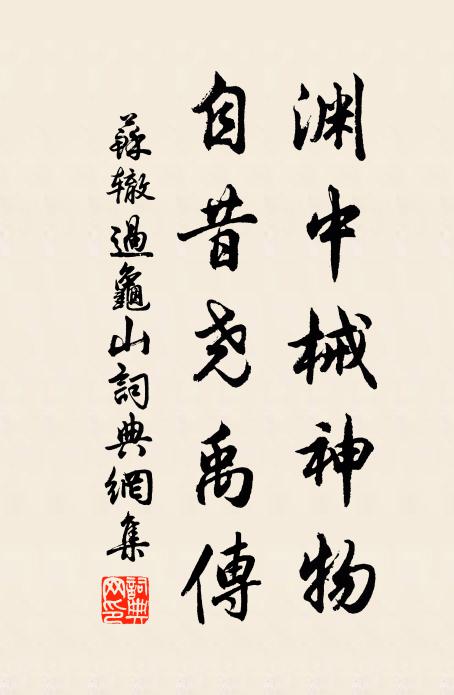 渊中械神物
自昔尧禹傳
蘇辙過龜山詞典網集
詞典網印